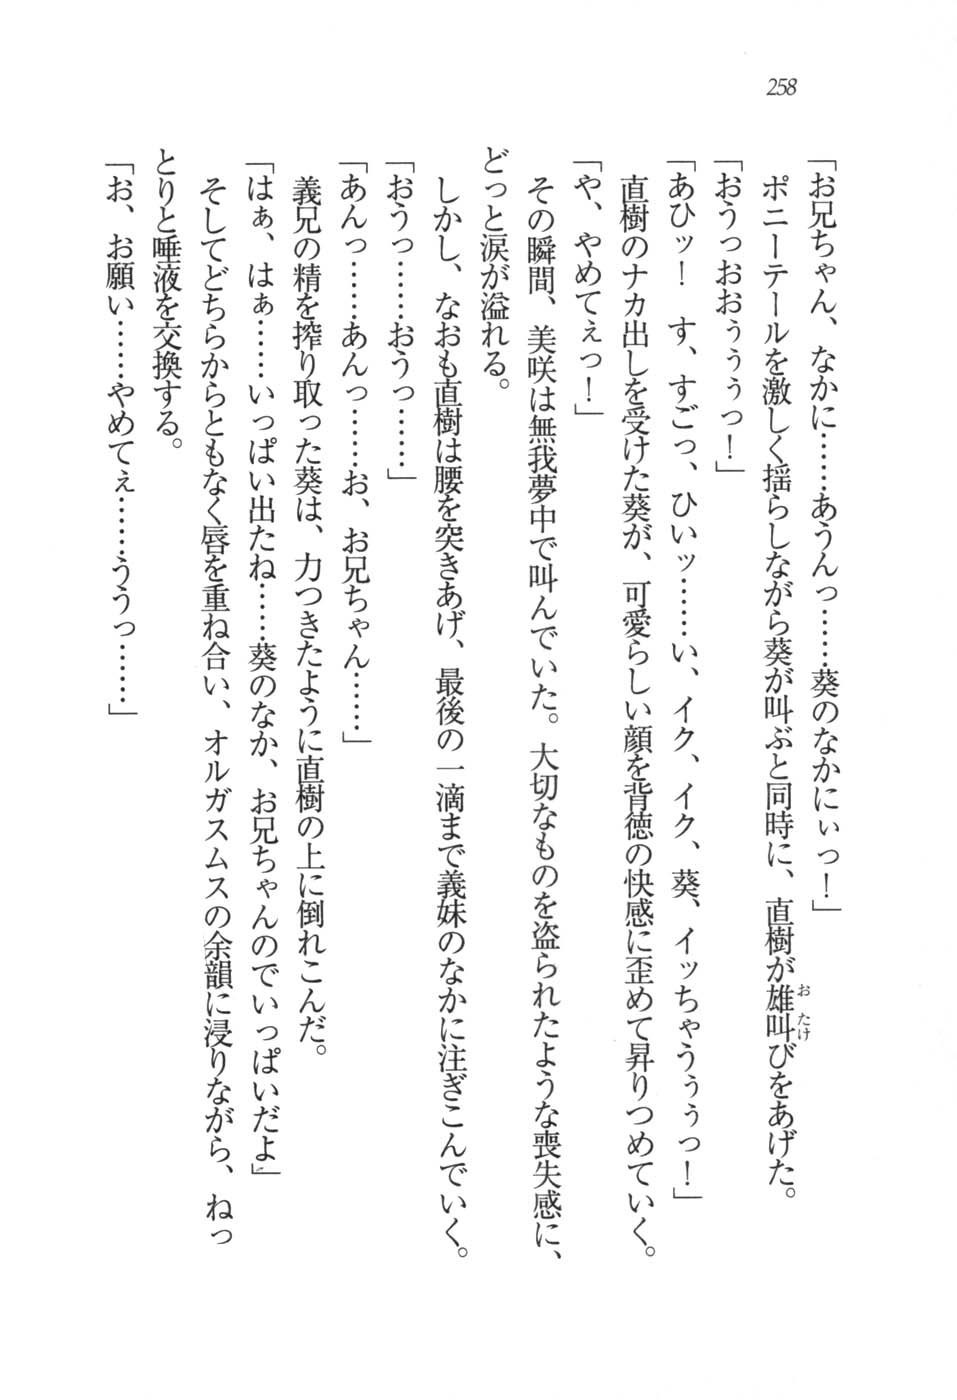 258
「お兄ちゃん、なかに……あうんっ……葵のなかにぃっ！」
ポニーテールを激しく揺らしながら葵が叫ぶと同時に、直樹が雄叫びをあげた。
おたけ
「おうっおおぅぅぅっ！」
「あひッ！　す、すごっ、ひいッ……い、イク、イク、葵、イッちゃうぅぅっ！」
直樹のナカ出しを受けた葵が、可愛らしい顔を背徳の快感に歪めて昇りつめていく。
「や、やめてぇっ！」
その瞬間、美咲は無我夢中で叫んでいた。大切なものを盗られたような喪失感に、
どっと涙が溢れる。
しかし、なおも直樹は腰を突きあげ、最後の一滴まで義妹のなかに注ぎこんでいく。
「おうっ……おうっ……」
「あんっ……あんっ……お、お兄ちゃん……」
義兄の精を搾り取った葵は、力つきたように直樹の上に倒れこんだ。
「はぁ、はぁ……いっぱい出たね……葵のなか、お兄ちゃんのでいっぱいだよ」
そしてどちらからともなく唇を重ね合い、オルガスムスの余韻に浸りながら、ねっ
とりと唾液を交換する。
「お、お願い……やめてぇ……ううっ……」